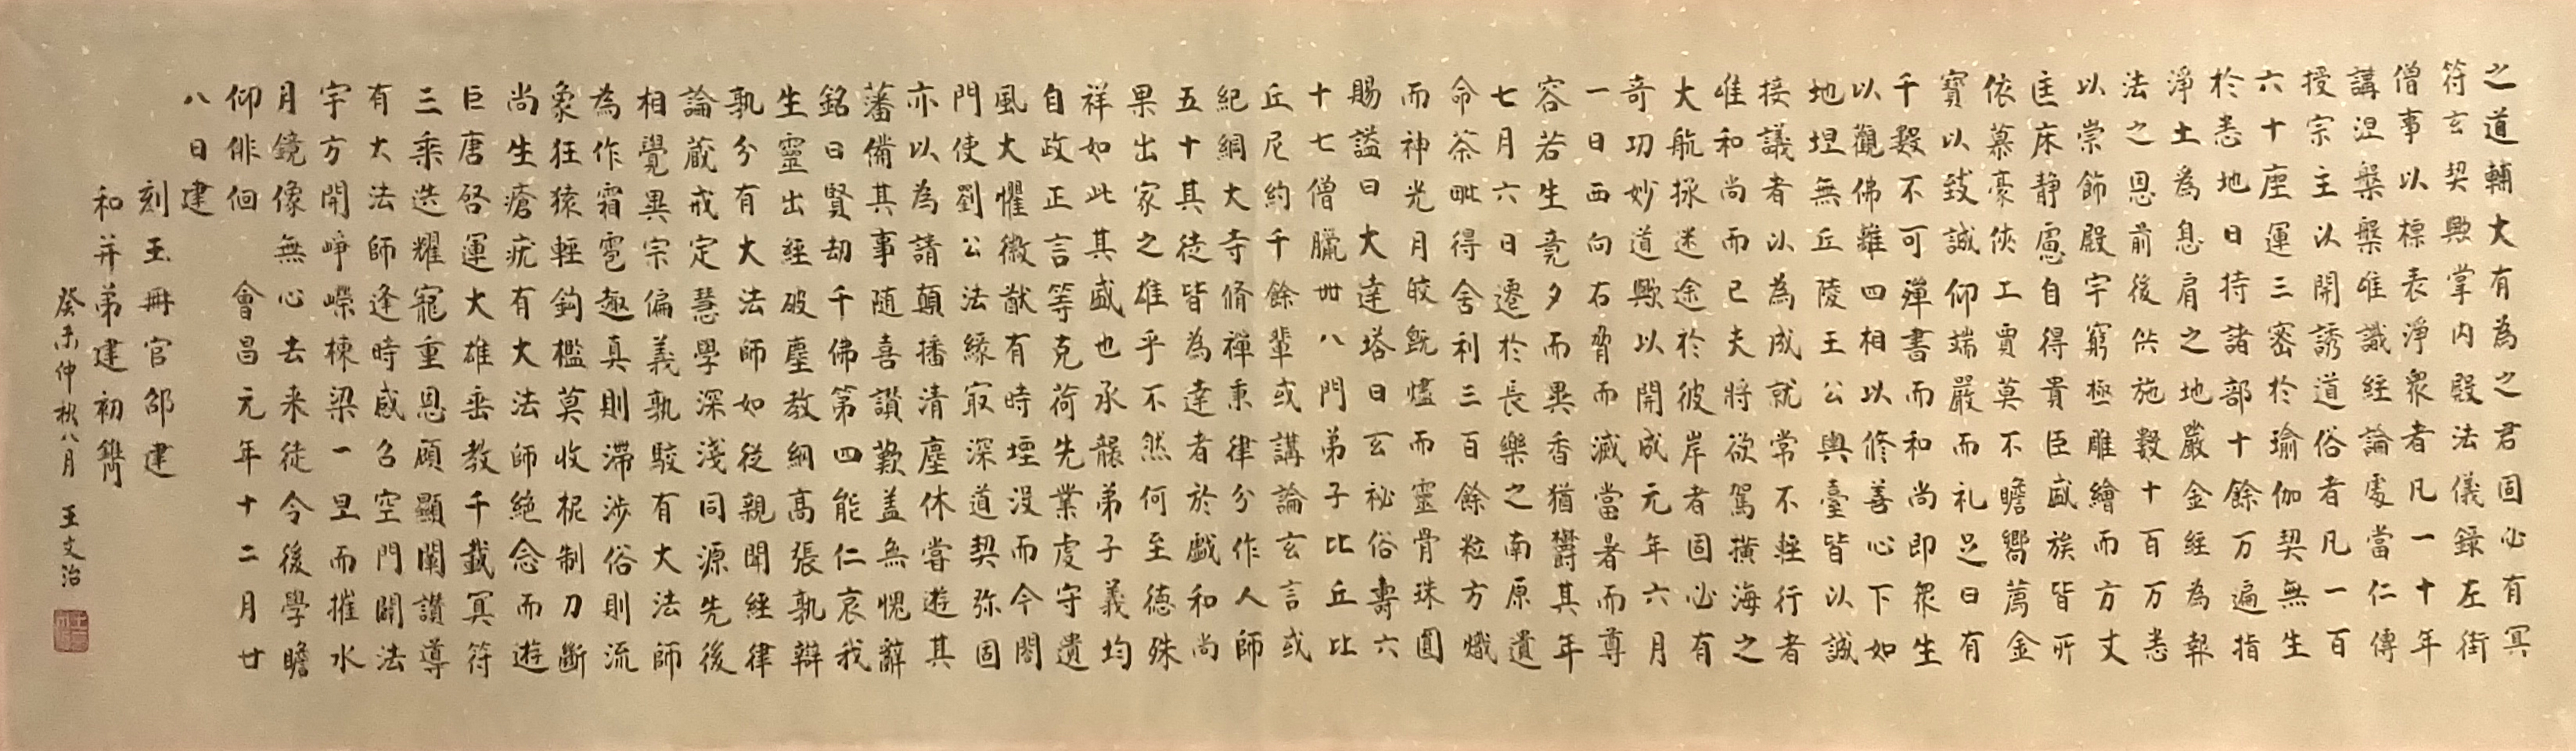 之道輔大有為之君固必有冥
符玄契歟掌内殿法儀錄左街
僧事以標表淨衆者凡一十年
講涅槃槃唯識經論處當仁傳
授宗主以開誘道俗者凡一百
六十座運三密於瑜伽契無生
於悉地日持諸部十餘万遍指
淨土為息肩之地嚴金經為報
法之恩前後供施數十百万悉
以崇飾殿宇窮極雕繪而方丈
匡床静慮自得貴臣盛族皆所
依慕豪俠工賈莫不瞻嚮薦金
寶以致誠仰端嚴而礼足日有
千數不可殫書而和尚即衆生
以觀佛離四相以修善心下如
地坦無丘陵王公輿臺皆以誠
接議者以為成就常不輕行者
唯和尚而已夫將欲駕橫海之
大航拯迷途於彼岸者固必有
奇功妙道歟以開成元年六月
一日西向右脅而滅當暑而尊
容若生竟夕而異香猶欝其年
七月六日遷於長樂之南原遺
命荼毗得舍利三百餘粒方熾
而神光月皎既燼而靈骨珠圓
賜謚曰大達塔曰玄秘俗壽六
十七僧臘卌八門弟子比丘比
丘尼約千餘輩或講論玄言或
紀綱大寺脩禪秉律分作人師
五十其徒皆為達者於戲和尚
果出家之雄乎不然何至德殊
祥如此其盛也承襲弟子義均
自政正言等克荷先業虔守遺
風大懼徽猷有時堙沒而今閤
門使劉公法緣㝡深道契弥固
亦以為請願播清塵休嘗遊其
藩備其事随喜讚歎盖無愧辭
銘曰賢劫千佛第四能仁哀我
生靈出經破塵教綱高張孰辯
孰分有大法師如從親聞經律
論藏戒定慧學深淺同源先後
相覺異宗偏義孰駁有大法師
為作霜雹趣真則滯涉俗則流
象狂猿輕鉤檻莫收柅制刀斷
尚生瘡疣有大法師絕念而遊
巨唐啓運大雄垂教千載冥符
三乘迭耀寵重恩顧顯闡讚導
有大法師逢時感召空門闢法
宇方開崢嶸棟梁一旦而摧水
月鏡像無心去来徒令後學瞻
仰俳佪 會昌元年十二月廿
八日建
刻玉冊官邵建
和并弟建初鐫
癸未仲秋八月 王文治